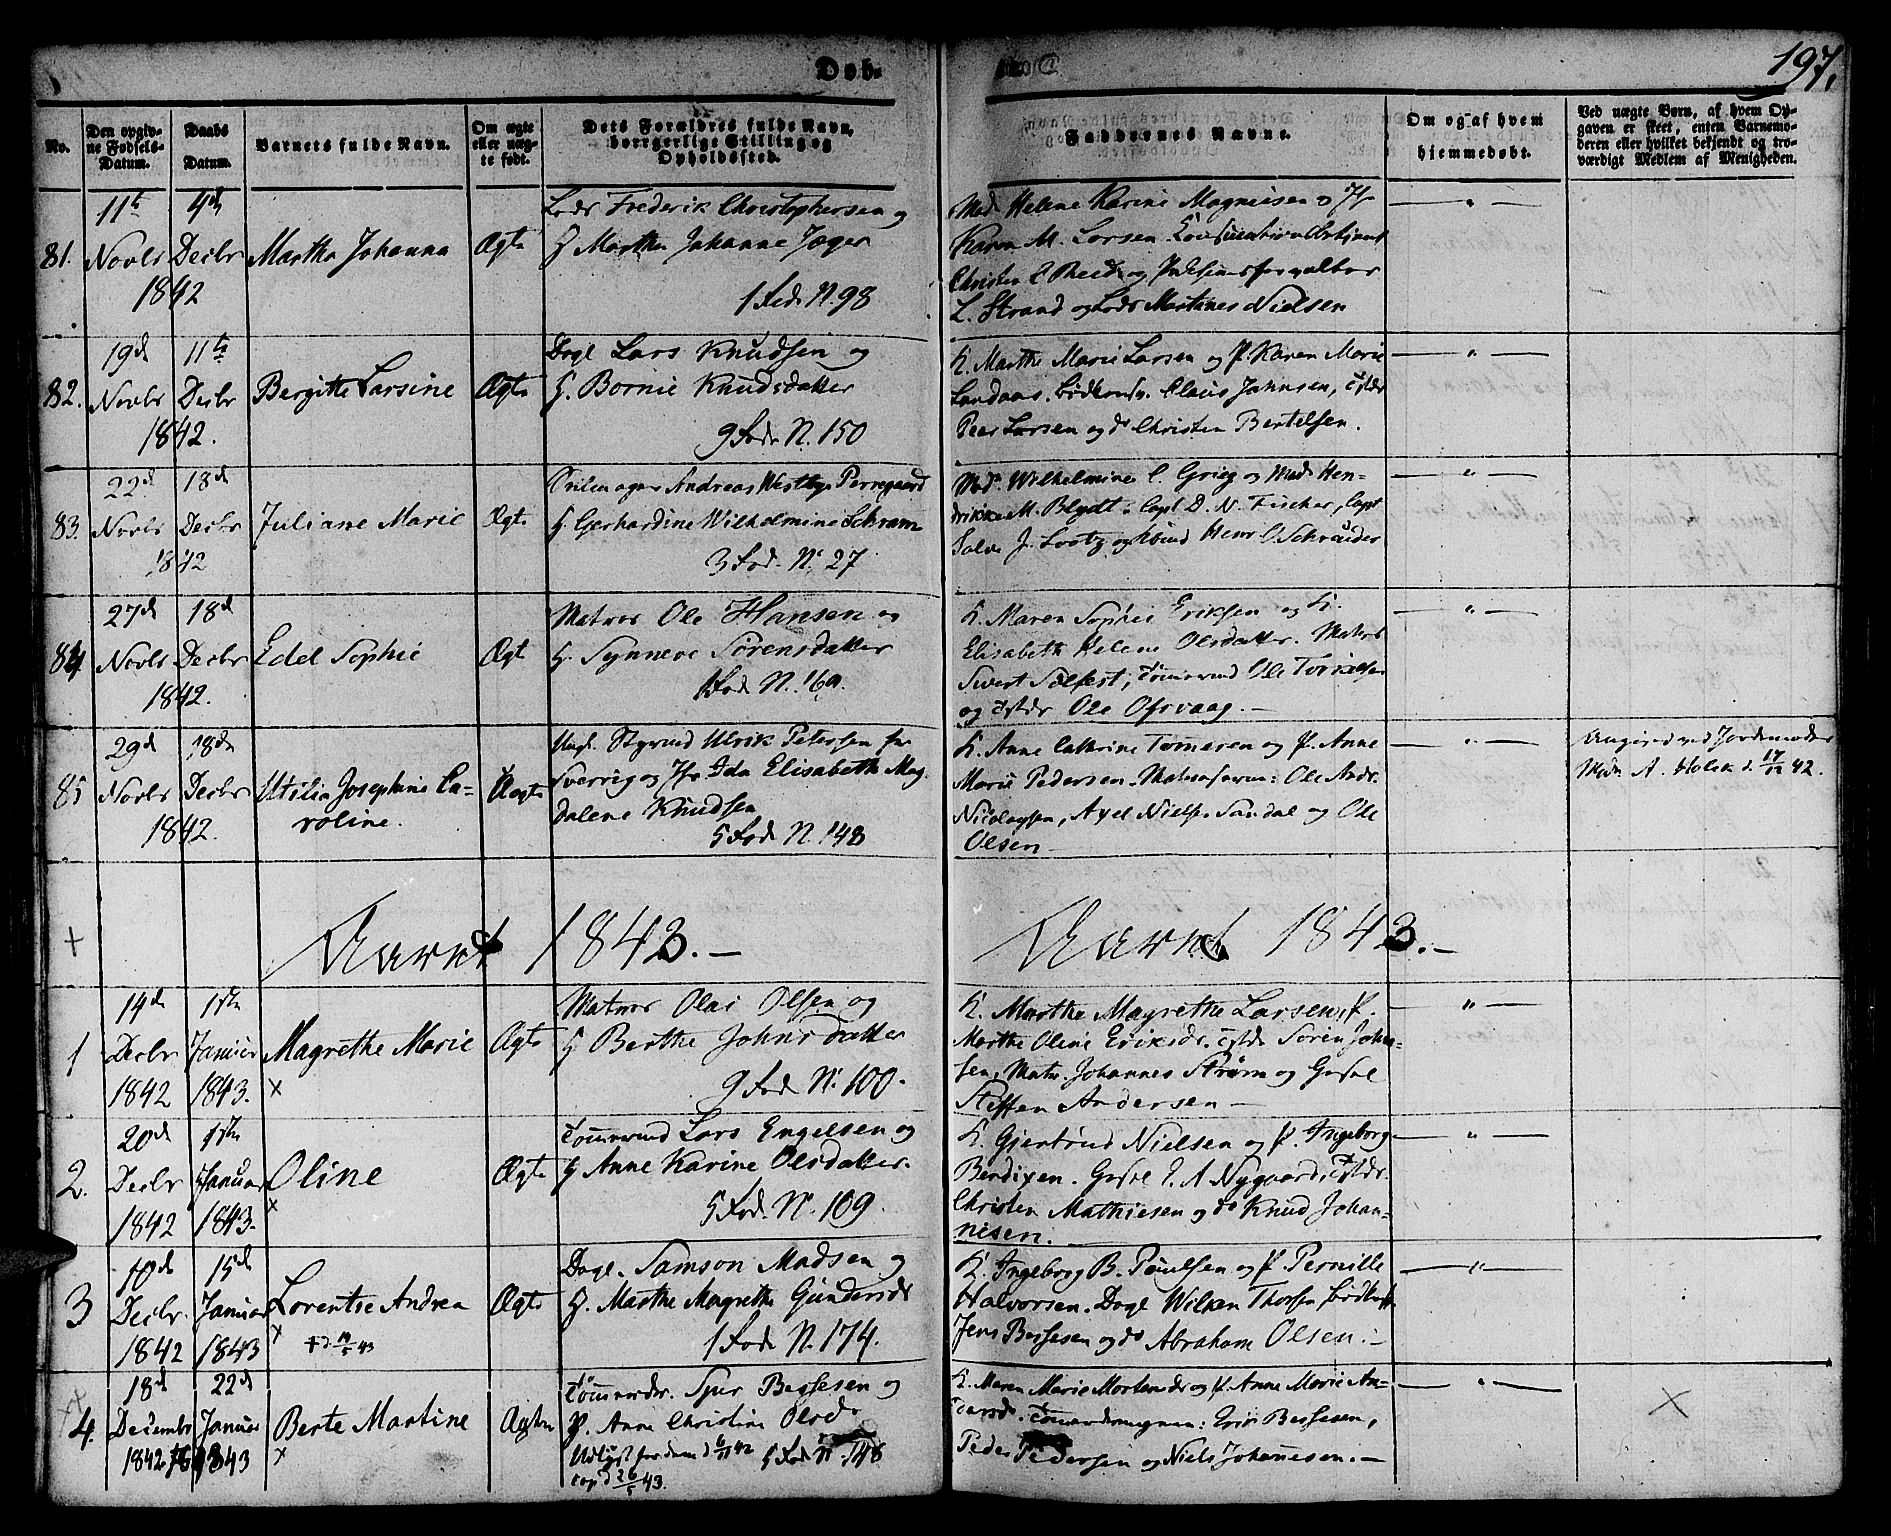 Døb-
197.
No.
Den opgiv-
ne Fødsels-
Datum.
Daabs
Datum.
Barnets fulde Navn.
Om ægte
eller uæg-
te født.
Dets Forældres fulde Navn,
borgerlige Stilling og
Opholdssted.
Faddernes Navne.
Om og af hvem
hjemmedøbt.
Ved uægte Børn, af hvem Op-
gaven er skeet, enten Barnemo-
deren eller hvilket bekjendt og tro-
værdigt Medlem af Menigheden.
81.
11te
Novbr
1842
4de
Decbr
Martha Johanna
Ægte
Lods Frederik Christophersen og
H Marthe Johanne Jæger
1 Fod. N. 98
Mad Helene Karine Magnusen og Jfr
Karen M. Larsen.
Christen
L. Strand og Lods Martinus Nielsen
82.
19d
Novbr
1842.
11te
Decbr
Bergitte Larsine
Ægte
Dagl Lars Knudsen og
H. Bornie Knudsdatter
9 Fod. N. 150
K. Marthe Marie Larsen og P. Karen Marie
Landaas. Claus Jahnsen,
Peer Larsen og do Christen Bertelsen.
83.
22d
Novbr
1842
18d
Decbr
Juliane Marie
Ægte
Andreas Westbye Perregaard
H. Gerhardine Wilhelmine Schram
3 Fod. N. 27
Md. Wilhelmine C. Grieg og Mad Hen-
drikke M. Blydt. Capt D. N. Fischer, Capt
Salve J. Lootz og Henr C. Schrøuder
84
27d
Novbr
1842.
18d
Decbr
Edel Sophie
Ægt
Matros Ole Hansen og
H. Synneve Sørensdatter
1 Fod N. 169.
K. Maren Sophie Eriksen og K.
Elisabeth Helene Olsdatter. Matros
Sivert Solfest, Tømmermd Ole Torkelsen
og Ole Ofsvaag.
85
29d
Novbr
1842.
18de
Decbr
Utilia Josephine Ca-
roline.
Uægte
Ungk. Styrmd Ulrik Petersen fra
Sverrig og Jfr Ida Elisabeth Mag
dalene Knudsen
5 Fod N. 148
K. Anne Cathrine Tømmeren og P. Anne
Marie Pedersen. Ole Andr.
Nicolaysen, Axel Niels. Sandal og Ole
Olsen
Angived ved Jordemoder
Mad. A. Holck d. 17/12 42.
+
Aaret 1843.
Aaret 1843.
1
14d
Decbr
1842
1ste
Januar
1843.
Magrethe Marie
×
Ægte
Matros Olai Olsen og
H Berthe Johnsdatter
9 Fod N. 100.
K. Marthe Magrethe Larsen, P.
Marthe Oline Eriksdr. Søren Johan-
sen, Matr. Johannes Strøm og
Steffen Andersen
2.
20d
Decbr
1842
1ste
Januar
1843.
Oline
×
Ægte
Tømmermd Lars Engelsen og
H Anne Karine Olsdatter.
5 Fod. N. 109.
K. Giertrud Nielsen og P. Ingeborg
Bendixen. A Nygaard,
Christen Mathiesen og do Knud Johan-
nesen.
3
10d
Decbr.
1842
15d
Januar
1843
Lorentse Andrea
×
+ d 14/5 43
Ægte
Dagl. Samson Madsen og
H. Marthe Magrethe Gundersdr
1 Fod N. 174.
K. Ingeborg B. Poulsen og P. Pernille
Halvorsen. Dagl Wilken Thorsen
Jens Bessesen og do Abraham Olsen.
4.
18d
Decembr
1842
22d
Januar
1843
Berte Martine
×
Ægten
Tømmerdr. Sjur Bessesen og
P. Anne Christine Olsdr
6/11 42 5 Fod N. 148
cop d 26/5 43.
K. Maren Marie Mortensdr og P. Anne Marie An-
dersdr. Erik Bessesen,
Peder Pedersen og Niels Johannesen.
×